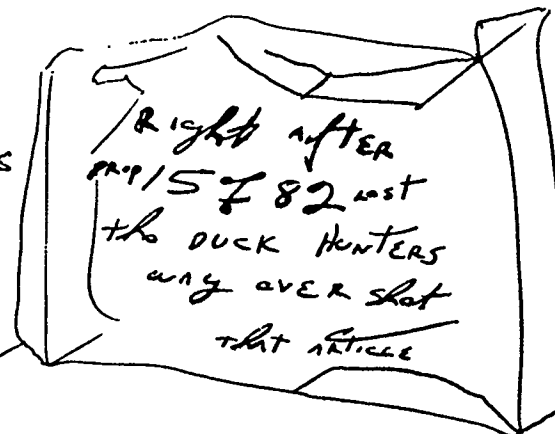 S
Right after
prop/5 & 82 lost
the DUCK HUNTERS
way over shot
that ARTICLE